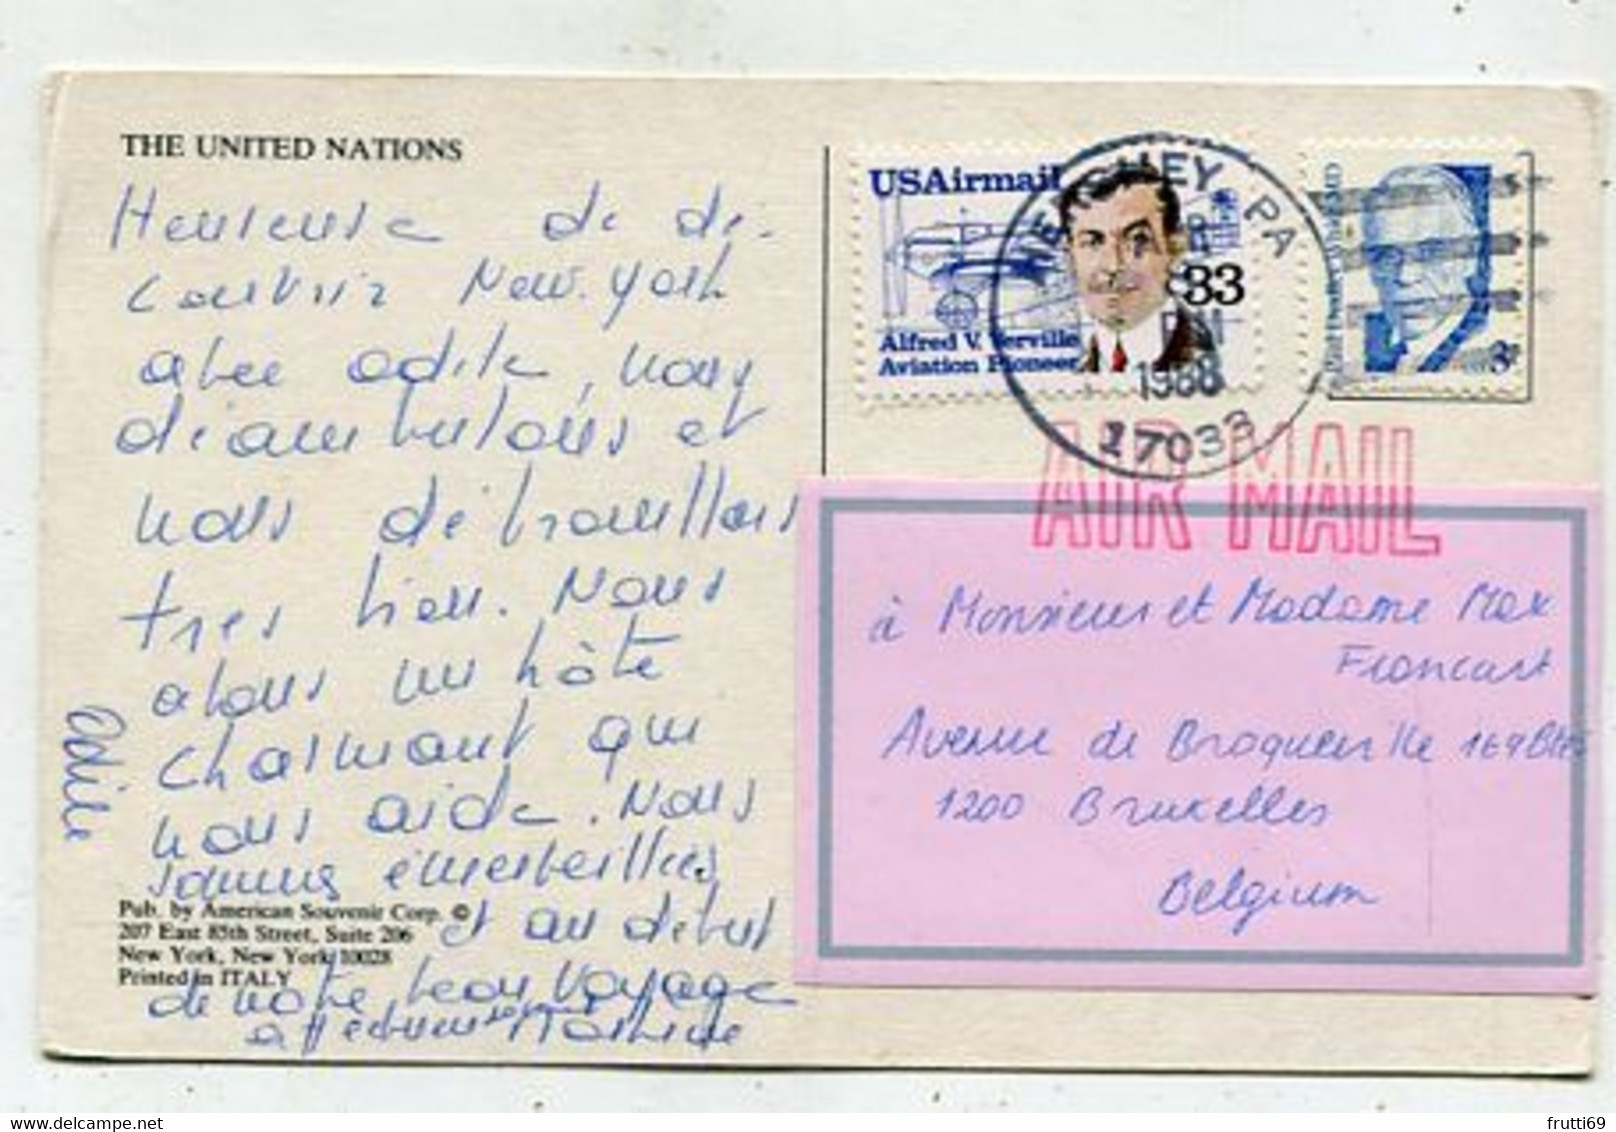 THE UNITED NATIONS
Heureuse de dé-
couvrir New-york
avec Odile, nous
déambulons et
nous débrouillons
très bien. Nous
avons un hôte
charmant qui
nous aide. Nous
sommes émerveillées
et au début
de notre beau voyage
affectueusement
Odile
Pub. by American Souvenir Corp. ©
207 East 85th Street, Suite 206
New York, New York 10028
Printed in ITALY
USAirmail
33
Alfred V. Verville
Aviation Pioneer
HERSHEY, PA
PM
1988
17033
3
AIR MAIL
à Monsieur et Madame Max
Francart
Avenue de Broqueville 169
1200 Bruxelles
Belgium
frutti69